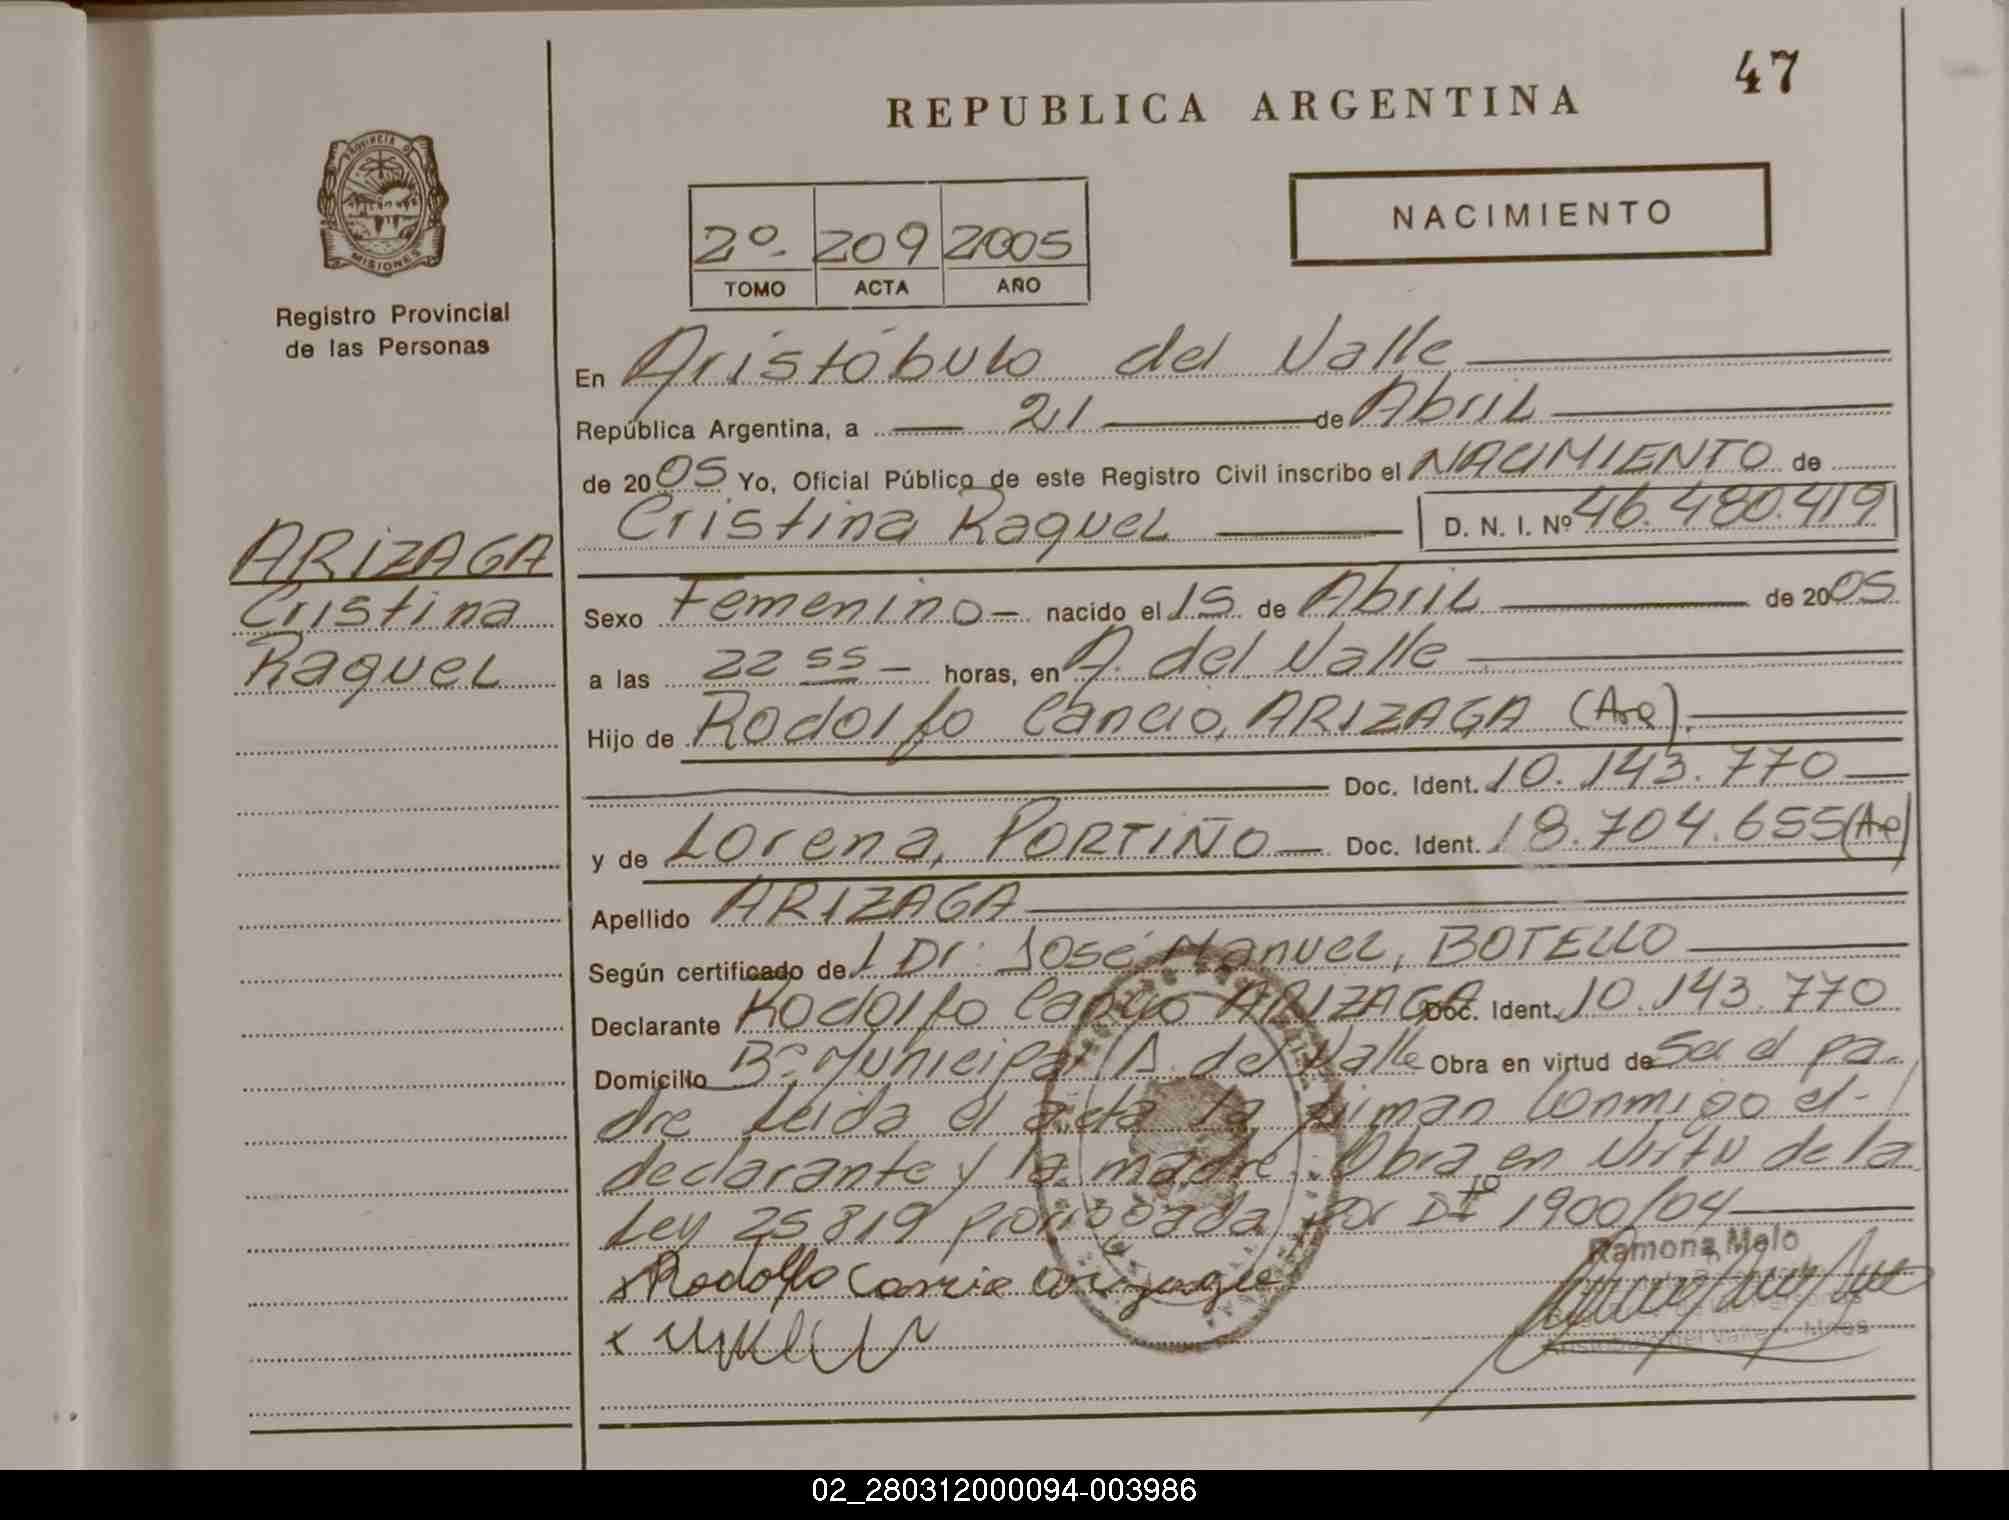 47
REPUBLICA ARGENTINA
NACIMIENTO
PROVINCIA DE
MISIONES
Registro Provincial
de las Personas
2º- 209 2005
TOMO ACTA AÑO
En Aristóbulo del Valle
República Argentina, a 21 de Abril
de 2005 Yo, Oficial Público de este Registro Civil inscribo el NACIMIENTO de
Cristina Raquel D. N. I. Nº 46.480.419
ARIZAGA
Cristina
Raquel
Sexo Femenino- nacido el 15 de Abril de 2005
a las 22 55 - horas, en A. del Valle
Hijo de Rodolfo Cancio, ARIZAGA (Arg)
Doc. Ident. 10.143.770
y de Lorena, PORTIÑO Doc. Ident. 18.704.655 (Arg)
Apellido ARIZAGA
Según certificado del Dr: José Manuel, BOTELLO
Declarante Rodolfo Cancio ARIZAGA Doc. Ident. 10.143.770
Domicilio Bº Municipal A. del Valle Obra en virtud de Ser el pa-
dre Leida el acta la firman Conmigo el-
declarante y la madre. Obra en Virtu de la
Ley 25819 prorrogada por Dto 1900/04
Ramona Melo
Rodolfo Cancio Arizaga
02_280312000094-003986